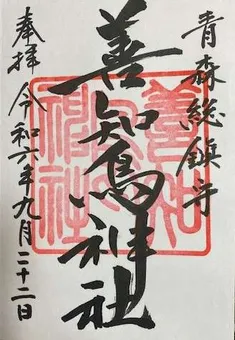 青森総鎮守
善知鳥神社
奉拝 令和六年九月二十二日
善知鳥神社